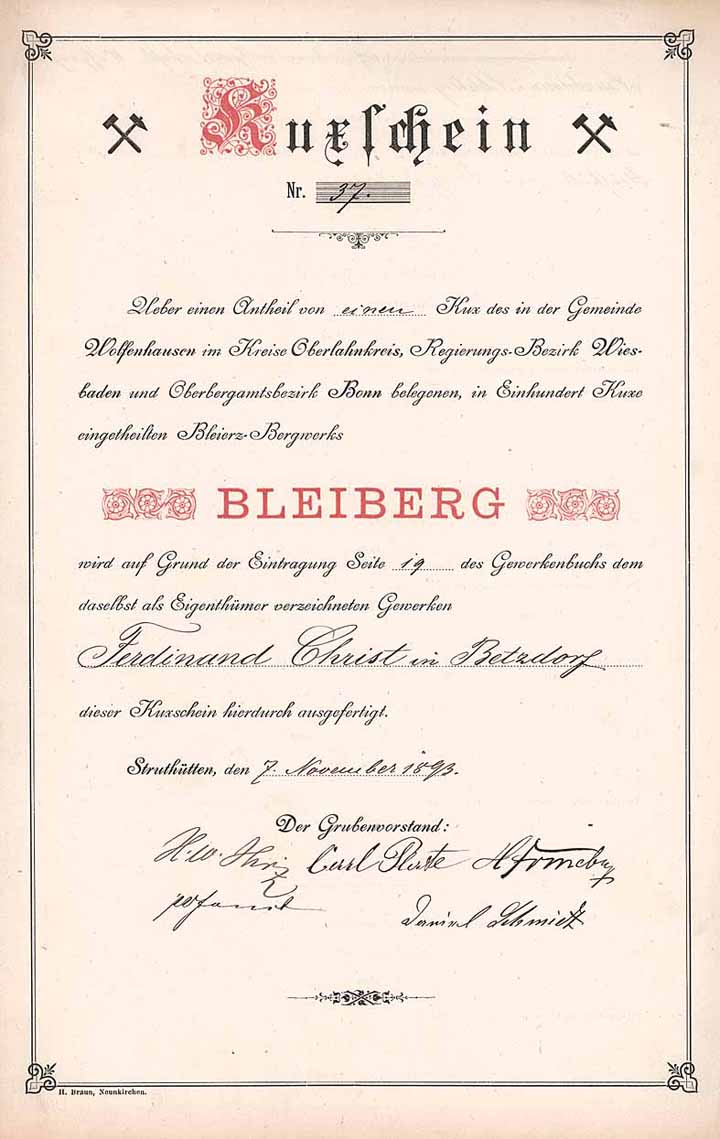 Kuxschein
Nr. 37.
Ueber einen Antheil von einen Kux des in der Gemeinde
Wolfenhausen im Kreise Oberlahnkreis, Regierungs-Bezirk Wies-
baden und Oberbergamtsbezirk Bonn belegenen, in Einhundert Kuxe
eingetheilten Bleierz-Bergwerks
BLEIBERG
wird auf Grund der Eintragung Seite 19 des Gewerkenbuchs dem
daselbst als Eigenthümer verzeichneten Gewerken
Ferdinand Christ in Betzdorf
dieser Kuxschein hierdurch ausgefertigt.
Struthütten, den 7. November 1893.
Der Grubenvorstand:
H. W. Carl Plate
Daniel Schmidt
H. Braun, Neunkirchen.